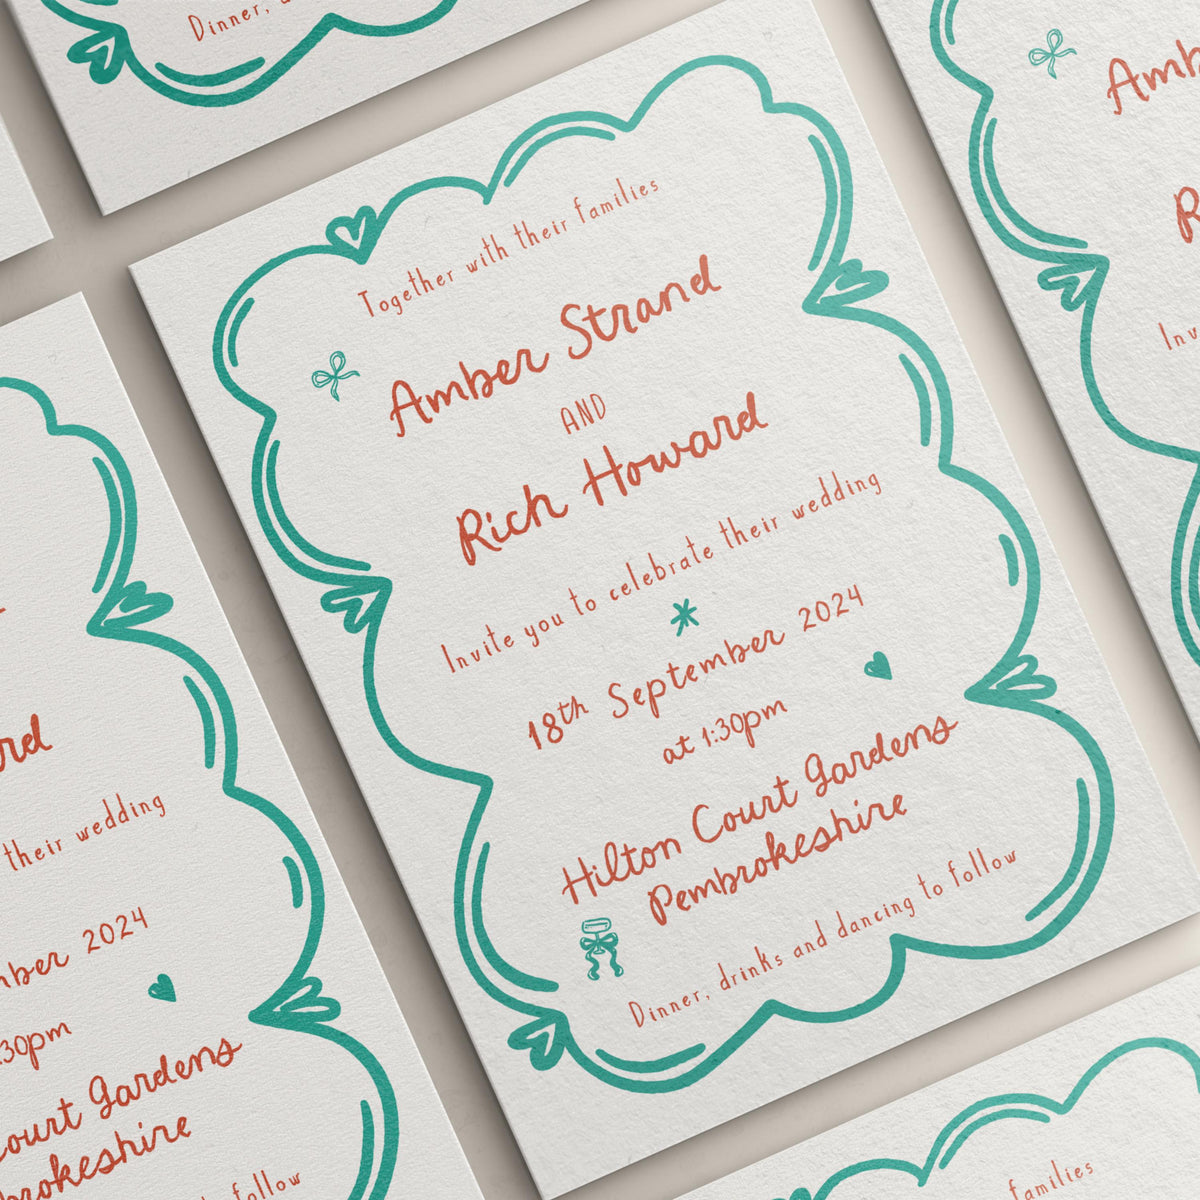 Dinner, d
Together with their families
Amber Strand
AND
Rich Howard
Invite you to celebrate their wedding
18th September 2024
at 1:30pm
Hilton Court Gardens
Pembrokeshire
Dinner, drinks and dancing to follow
Amb
R
Inv
rd
their wedding
mber 2024
:30pm
Court Gardens
brokeshire
to follow
families